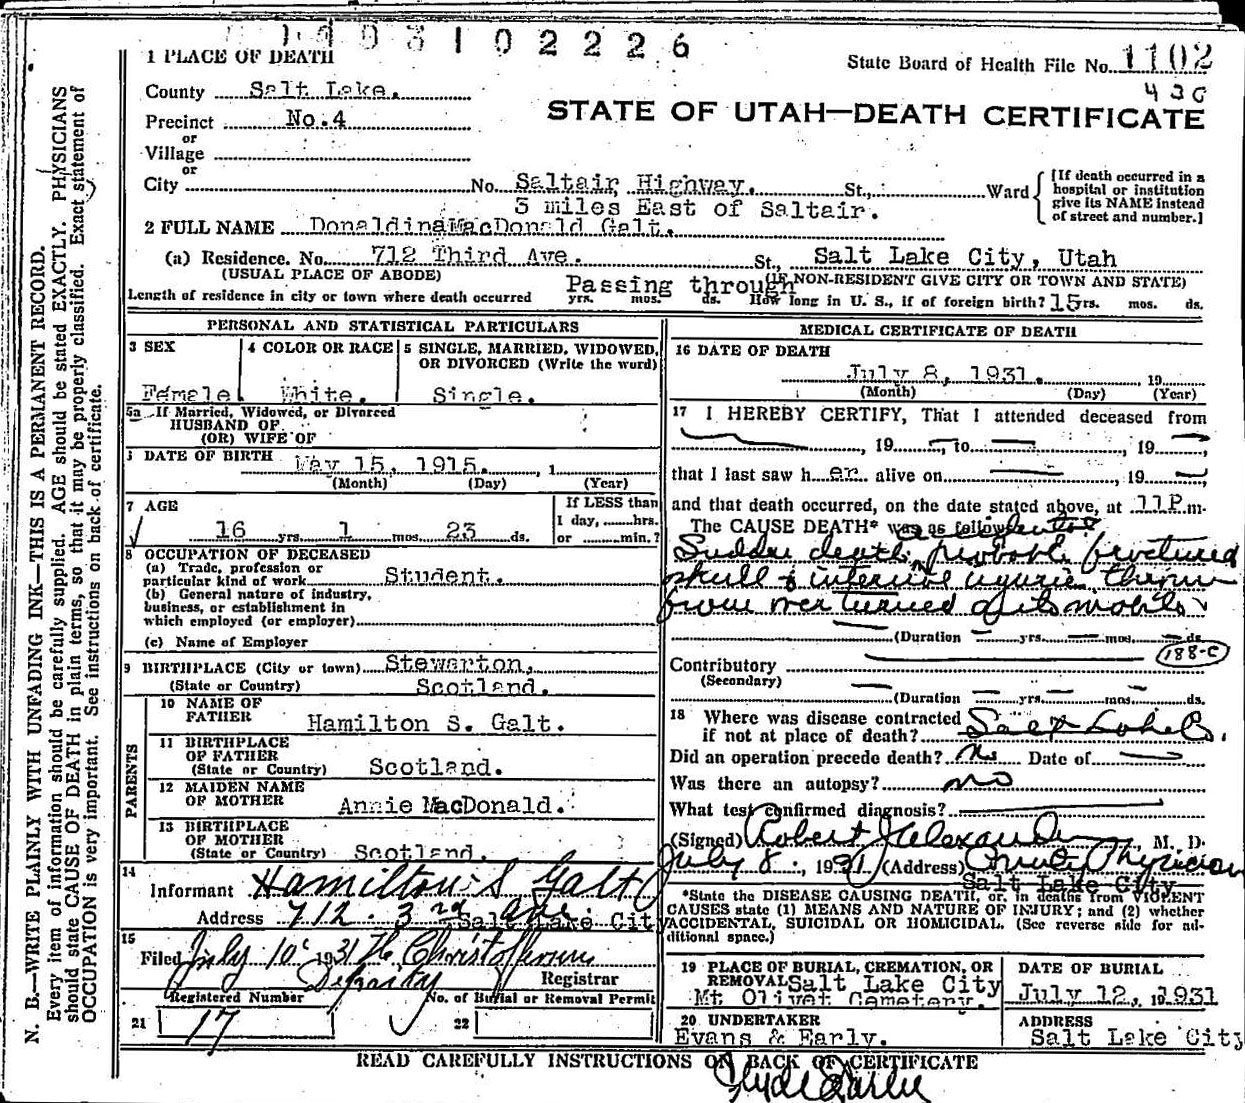 1 PLACE OF DEATH
State Board of Health File No. 1102
430
County Salt Lake.
STATE OF UTAH—DEATH CERTIFICATE
Precinct No.4
or
Village
or
City No. Saltair Highway. St., Ward
3 miles East of Saltair.
[If death occurred in a
hospital or institution
give its NAME instead
of street and number.]
2 FULL NAME Donaldina MacDonald Galt.
(a) Residence. No. 712 Third Ave. St., Salt Lake City, Utah
(USUAL PLACE OF ABODE) (IF NON-RESIDENT GIVE CITY OR TOWN AND STATE)
Passing through
Length of residence in city or town where death occurred yrs. mos. ds. How long in U. S., if of foreign birth? 15 rs. mos. ds.
PERSONAL AND STATISTICAL PARTICULARS
3 SEX
Female
4 COLOR OR RACE
White.
5 SINGLE, MARRIED, WIDOWED,
OR DIVORCED (Write the word)
Single.
5a If Married, Widowed, or Divorced
HUSBAND OF
(OR) WIFE OF
DATE OF BIRTH May 15, 1915. , 1
(Month) (Day) (Year)
7 AGE
16 yrs. 1 mos. 23 ds.
If LESS than
1 day, ......hrs.
or ......min.?
8 OCCUPATION OF DECEASED
(a) Trade, profession or
particular kind of work Student.
(b) General nature of industry,
business, or establishment in
which employed (or employer)
(c) Name of Employer
9 BIRTHPLACE (City or town) Stewarton,
(State or Country) Scotland.
PARENTS
10 NAME OF
FATHER Hamilton S. Galt.
11 BIRTHPLACE
OF FATHER
(State or Country) Scotland.
12 MAIDEN NAME
OF MOTHER Annie MacDonald.
13 BIRTHPLACE
OF MOTHER
(State or Country) Scotland.
14
Informant Hamilton S Galt
Address 712 - 3rd Ave. Salt Lake Cit
15
Filed July 10 1931 Christoffersen
Deputy Registrar
Registered Number
No. of Burial or Removal Permit
21 17
22
MEDICAL CERTIFICATE OF DEATH
16 DATE OF DEATH
July 8, 1931. , 19
(Month) (Day) (Year)
17 I HEREBY CERTIFY, That I attended deceased from
, 19 to , 19 ,
that I last saw h er alive on , 19 ,
and that death occurred, on the date stated above, at 11P.m.
The CAUSE DEATH* was as follows
Sudden death, probable fractured
skull & internal injuries thrown
from over turned automobile
(Duration yrs. mos. ds.
188-c
Contributory
(Secondary)
(Duration yrs. mos. ds.
18 Where was disease contracted
if not at place of death? Salt Lake Co.
Did an operation precede death? No Date of
Was there an autopsy? no
What test confirmed diagnosis?
(Signed) Robert J Alexander, M. D.
July 8, 1931 (Address) County Physician
Salt Lake City
*State the DISEASE CAUSING DEATH, or, in deaths from VIOLENT
CAUSES state (1) MEANS AND NATURE OF INJURY; and (2) whether
ACCIDENTAL, SUICIDAL OR HOMICIDAL. (See reverse side for ad-
ditional space.)
19 PLACE OF BURIAL, CREMATION, OR
REMOVAL Salt Lake City
Mt Olivet Cemetery.
DATE OF BURIAL
July 12, 19 1931
20 UNDERTAKER
Evans & Early.
ADDRESS
Salt Lake City
READ CAREFULLY INSTRUCTIONS ON BACK OF CERTIFICATE
N. B.—WRITE PLAINLY WITH UNFADING INK—THIS IS A PERMANENT RECORD.
Every item of information should be carefully supplied. AGE should be stated EXACTLY. PHYSICIANS
should state CAUSE OF DEATH in plain terms, so that it may be properly classified. Exact statement of
OCCUPATION is very important. See instructions on back of certificate.